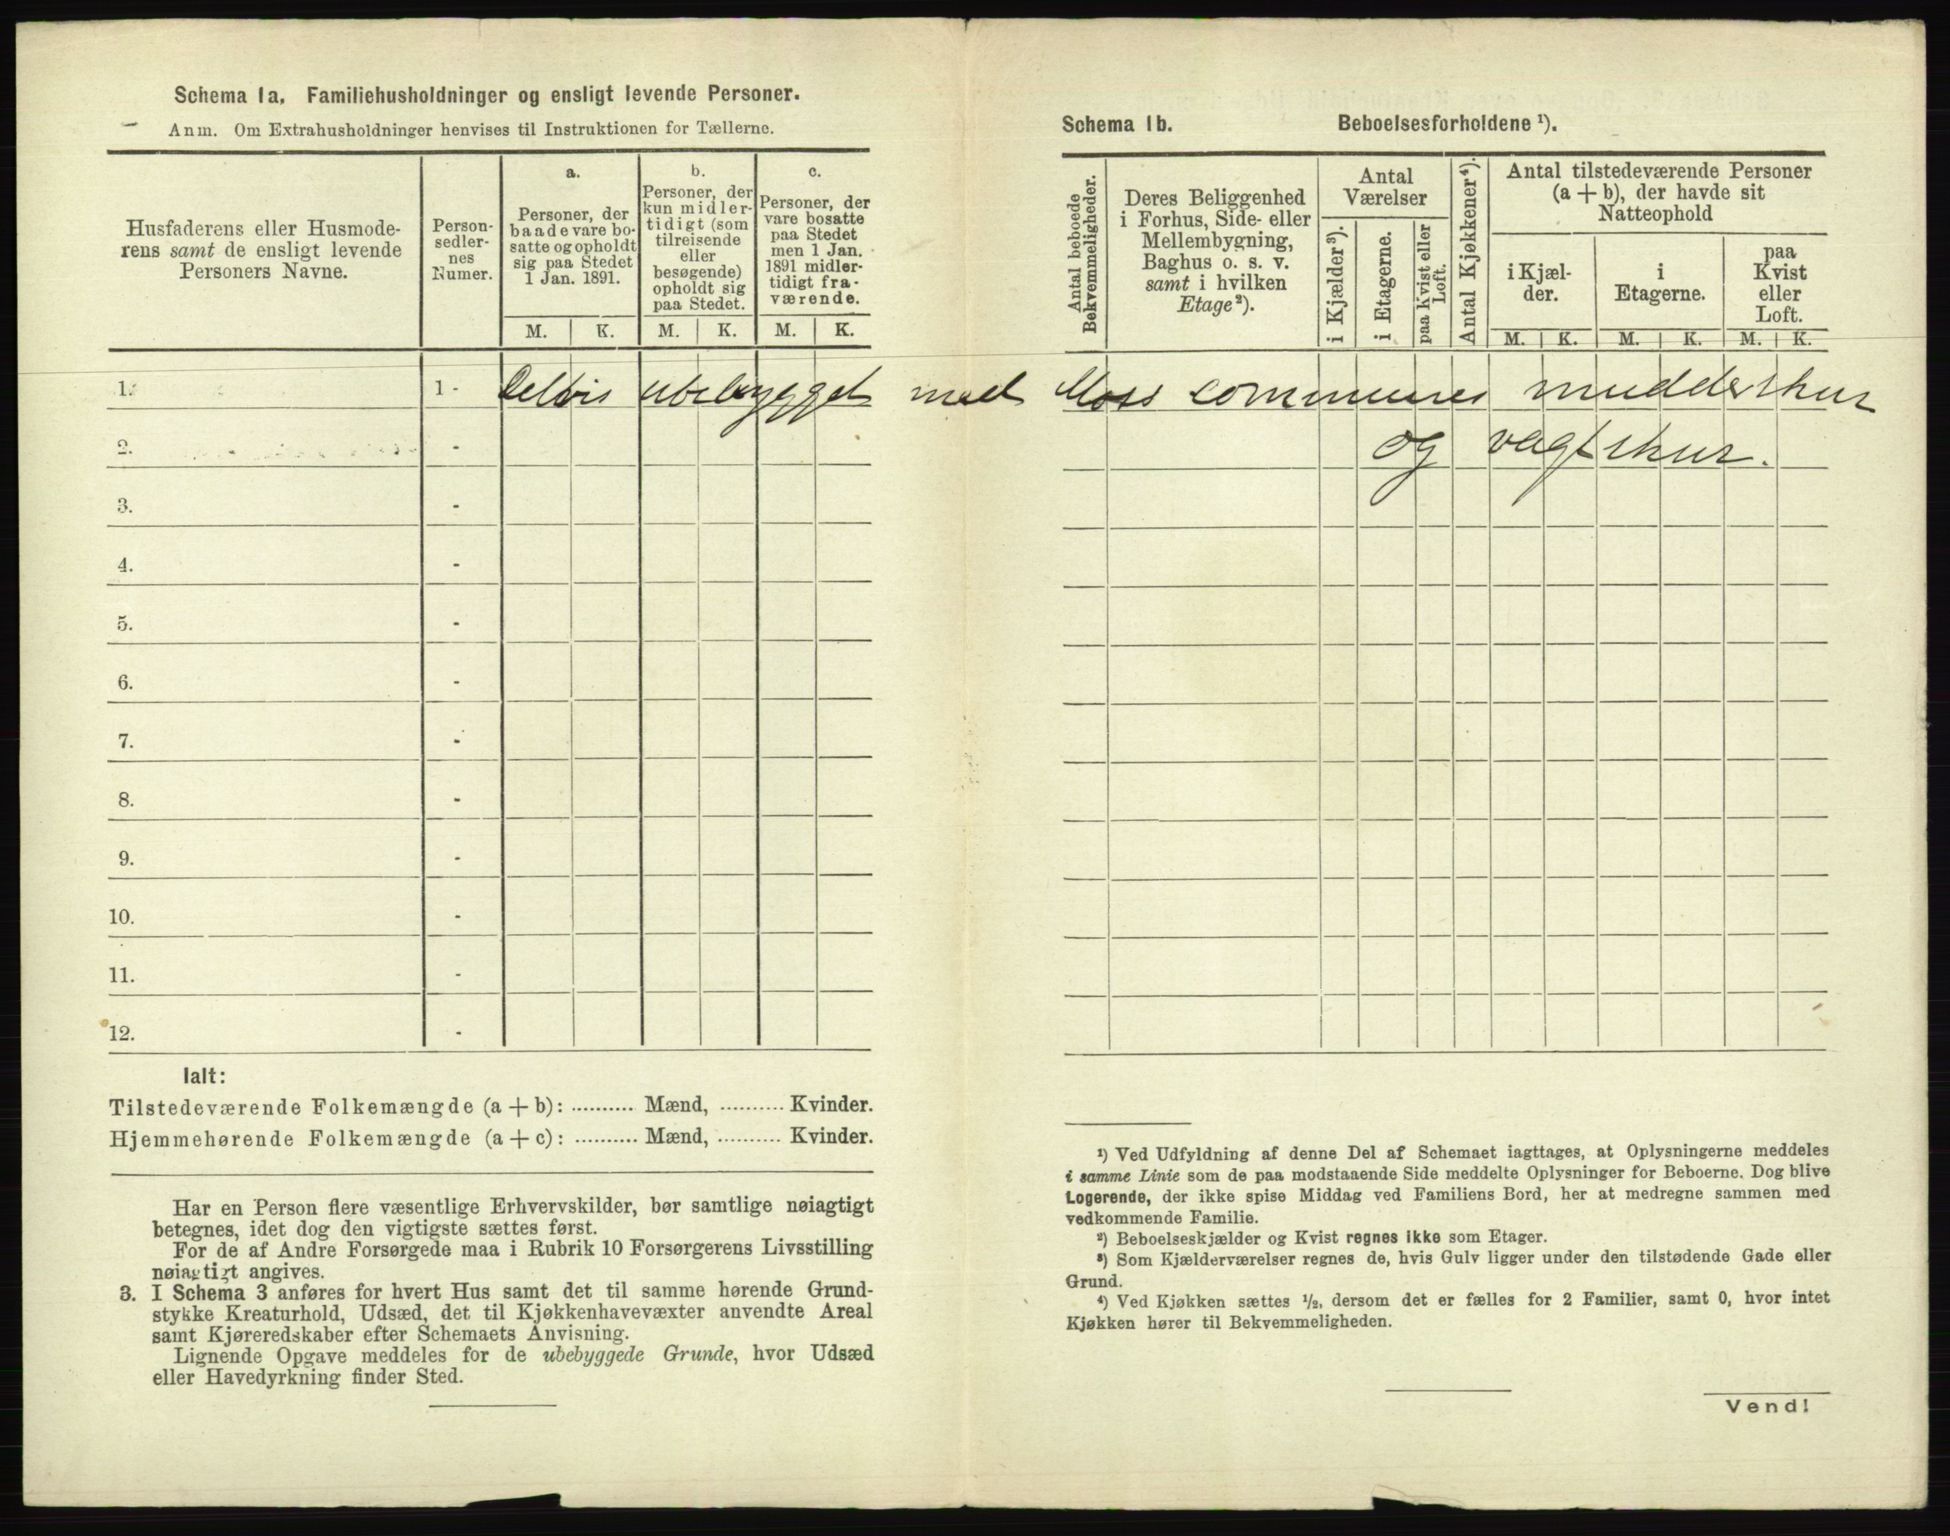 Schema 1a. Familiehusholdninger og ensligt levende Personer.
Anm. Om Extrahusholdninger henvises til Instruktionen for Tællerne.
Husfaderens eller Husmode-
rens samt de ensligt levende
Personers Navne.
Person-
sedler-
nes
Numer.
a.
Personer, der
baade vare bo-
satte og opholdt
sig paa Stedet
1 Jan. 1891.
b.
Personer, der
kun midler-
tidigt (som
tilreisende
eller
besøgende)
opholdt sig
paa Stedet.
c.
Personer, der
vare bosatte
paa Stedet
men 1 Jan.
1891 midler-
tidigt fra-
værende.
M. K. M. K. M. K.
1. 1 - Delvis ubebygget med Moss communes mudderskur
2. - og vagtskur.
3. -
4. -
5. -
6. -
7. -
8. -
9. -
10. -
11. -
12. -
Ialt:
Tilstedeværende Folkemængde (a + b): .......... Mænd, .......... Kvinder.
Hjemmehørende Folkemængde (a + c): .......... Mænd, .......... Kvinder.
Har en Person flere væsentlige Erhvervskilder, bør samtlige nøiagtigt
betegnes, idet dog den vigtigste sættes først.
For de af Andre Forsørgede maa i Rubrik 10 Forsørgerens Livsstilling
nøiagtigt angives.
3. I Schema 3 anføres for hvert Hus samt det til samme hørende Grund-
stykke Kreaturhold, Udsæd, det til Kjøkkenhavevæxter anvendte Areal
samt Kjøreredskaber efter Schemaets Anvisning.
Lignende Opgave meddeles for de ubebyggede Grunde, hvor Udsæd
eller Havedyrkning finder Sted.
Schema 1b. Beboelsesforholdene ¹).
Antal beboede
Bekvemmeligheder.
Deres Beliggenhed
i Forhus, Side- eller
Mellembygning,
Baghus o. s. v.
samt i hvilken
Etage²).
Antal
Værelser
i Kjælder³).
i Etagerne.
paa Kvist eller
Loft.
Antal Kjøkkener⁴).
Antal tilstedeværende Personer
(a + b), der havde sit
Natteophold
i Kjæl-
der.
i
Etagerne.
paa
Kvist
eller
Loft.
M. K. M. K. M. K.
¹) Ved Udfyldning af denne Del af Schemaet iagttages, at Oplysningerne meddeles
i samme Linie som de paa modstaaende Side meddelte Oplysninger for Beboerne. Dog blive
Logerende, der ikke spise Middag ved Familiens Bord, her at medregne sammen med
vedkommende Familie.
²) Beboelseskjælder og Kvist regnes ikke som Etager.
³) Som Kjælderværelser regnes de, hvis Gulv ligger under den tilstødende Gade eller
Grund.
⁴) Ved Kjøkken sættes ½, dersom det er fælles for 2 Familier, samt 0, hvor intet
Kjøkken hører til Bekvemmeligheden.
Vend!